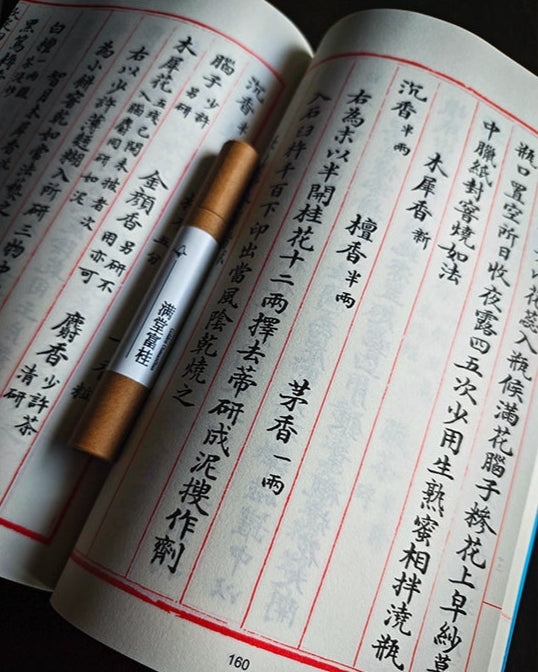 以花蕊入瓶候滿花腦子糝花上皁紗
瓶口置空所日收夜露四五次少用生熟蜜相拌澆瓶
中臘紙封窨燒如法
木犀香 新
沉香 半兩 檀香 半兩 茅香 一兩
右為末以半開桂花十二兩擇去蒂研成泥搜作劑
入石臼杵千百下印出當風陰乾燒之
160
满堂富桂
沉香 半
腦子 少許 另研 金顏香 另研不用亦可 麝香 少許茶清研
木犀花 五盞已開未披者次入腦麝同研如泥
右以少許薄麵糊入所研三物中
為小餅窨乾如常法
白檀 一兩